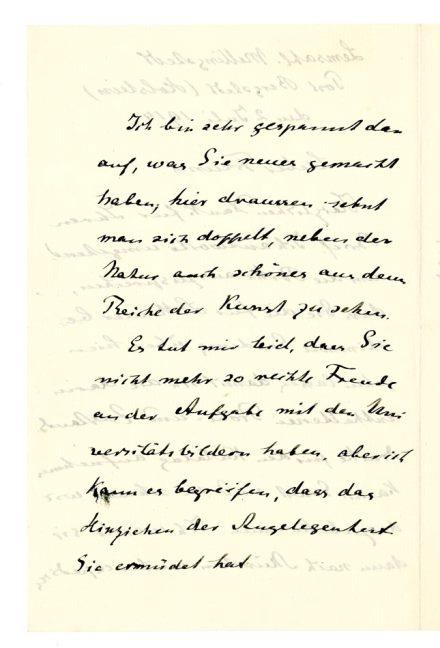 Ich bin sehr gespannt dar
auf, was Sie neues gemacht
haben, hier draussen sehnt
man sich doppelt, neben der
Natur auch schönes aus dem
Reiche der Kunst zu sehen.
Es tut mir leid, dass Sie
nicht mehr so rechte Freude
an der Aufgabe mit den Uni
versitätsbildern haben, aber ich
kann es begreifen, dass das
Hinziehen der Angelegenheit
Sie ermüdet hat